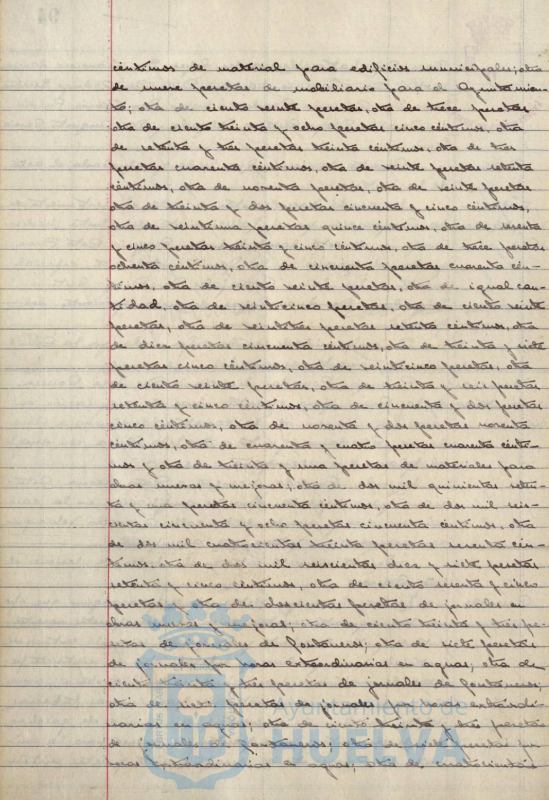 céntimos de material para edificios municipales; otra
de nueve pesetas de mobiliario para el Ayuntamien-
to; otra de ciento veinte pesetas, otra de trece pesetas
otra de ciento treinta y ocho pesetas cinco céntimos, otra
de setenta y tres pesetas treinta céntimos, otra de tres
pesetas cuarenta céntimos, otra de veinte pesetas setenta
céntimos, otra de noventa pesetas, otra de veinte pesetas
otra de treinta y dos pesetas cincuenta y cinco céntimos,
otra de veintiuna pesetas quince céntimos, otra de
y cinco pesetas treinta y cinco céntimos, otra de trece pesetas
ochenta céntimos, otra de cincuenta pesetas cuarenta cén-
timos, otra de ciento veinte pesetas, otra de igual can-
tidad, otra de veinticinco pesetas, otra de ciento veinte
pesetas, otra de veintitres pesetas setenta céntimos, otra
de diez pesetas cincuenta céntimos, otra de treinta y siete
pesetas cinco céntimos, otra de veinticinco pesetas, otra
de ciento veinte pesetas, otra de treinta y seis pesetas
setenta y cinco céntimos, otra de cincuenta y dos pesetas
cinco céntimos, otra de noventa y dos pesetas noventa
céntimos, otra de cuarenta y cuatro pesetas cuarenta cénti-
mos y otra de treinta y una pesetas de materiales para
obras nuevas y mejoras; otra de dos mil quinientas seten-
ta y una pesetas cincuenta céntimos, otra de dos mil seis-
cientas cincuenta y ocho pesetas cincuenta céntimos, otra
de dos mil cuatrocientas treinta pesetas sesenta cén-
timos, otra de dos mil seiscientas diez y siete pesetas
setenta y cinco céntimos, otra de ciento sesenta y cinco
pesetas y otra de doscientas pesetas de jornales en
obras nuevas y mejoras; otra de ciento treinta y tres pe-
setas de jornales de fontaneros; otra de siete pesetas
de jornales por horas extraordinarias en aguas; otra de
ciento treinta y tres pesetas de jornales de fontaneros;
otra de siete pesetas de jornales por horas extraordi-
narias en aguas; otra de ciento treinta y tres pesetas
de jornales de fontaneros; otra de siete pesetas por
horas extraordinarias en aguas; otra de cuatrocientas
Ayuntamiento de
HUELVA